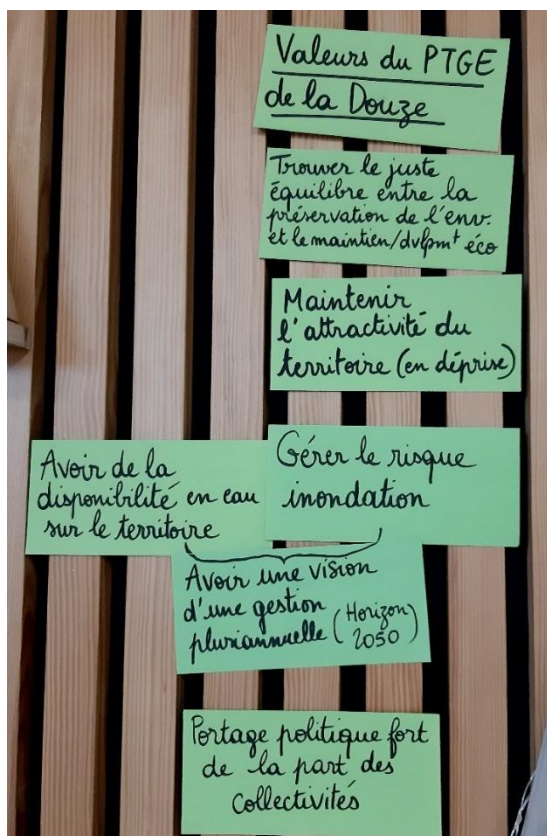 Valeurs du PTGE
de la Douze
Trouver le juste
équilibre entre la
préservation de l'env.
et le maintien/dvlpmt éco
Maintenir
l'attractivité du
territoire (en déprise)
Avoir de la
disponibilité en eau
sur le territoire
Gérer le risque
inondation
Avoir une vision
d'une gestion
pluriannuelle (Horizon
2050)
Portage politique fort
de la part des
collectivités